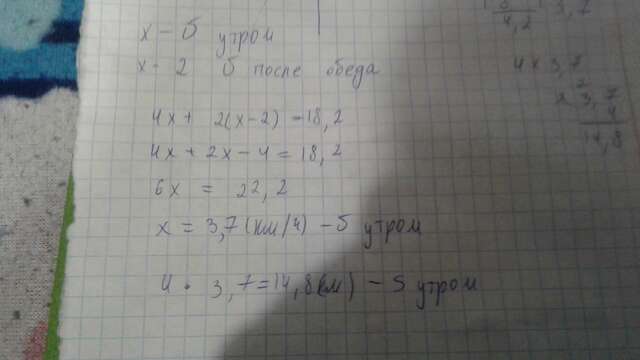 x - б утром
x - 2 б после обеда
4x + 2(x-2) = 18,2
4x + 2x - 4 = 18,2
6x = 22,2
x = 3,7 (км/ч) - б утром
4 · 3,7 = 14,8(км) - s утром
4,2 3,7
4 x 3,7
x 3,7
4
14,8